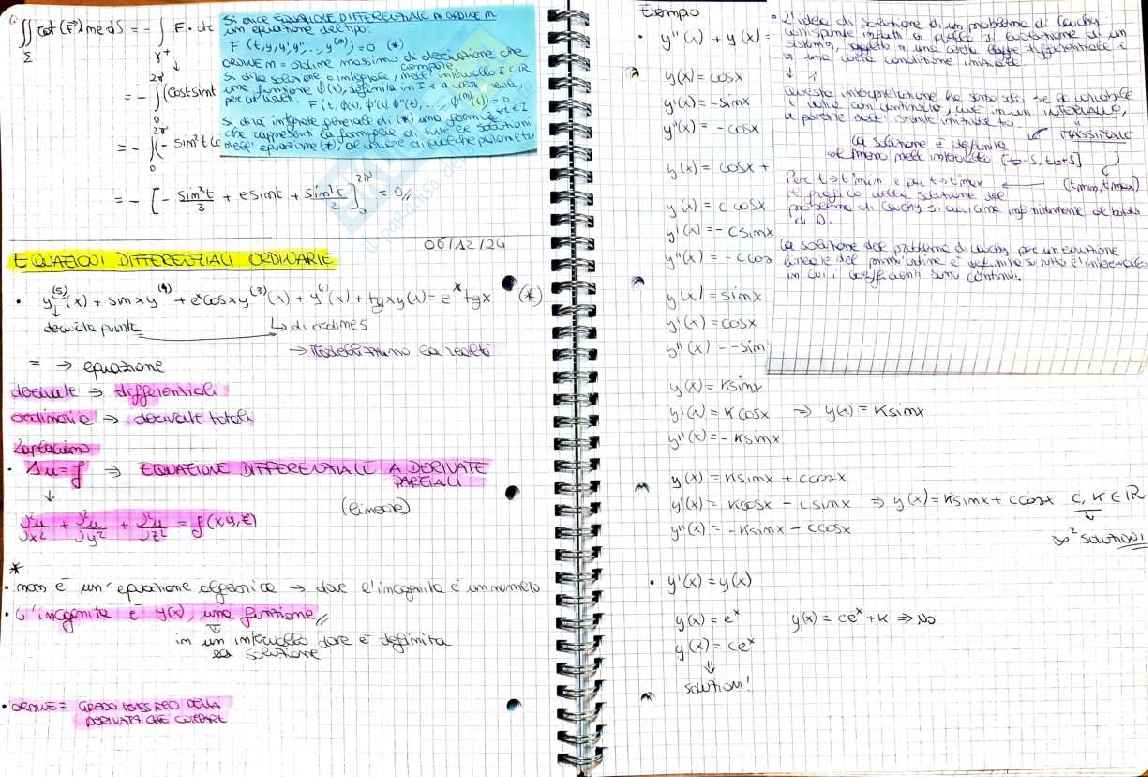 ∬ rot (F) n ds = - ∫ F · dt
Σ γ+
= - ∫ (cost sint
= - ∫ (- sin²t
= - [ - sin³t/3 + e sint + sin²t/2 ] = 0 //
Si dice EQUAZIONE DIFFERENZIALE di ORDINE n
un'equazione del tipo:
F (t, y, y', y'', ..., y⁽ⁿ⁾) = 0 (*)
ORDINE n = ordine massimo di derivazione che compare
Si dice soluzione o integrale, nell'intervallo I ⊂ ℝ
una funzione φ(t), definita in I e a valori reali,
per cui
F (t, φ(t), φ'(t), φ''(t), ... φ⁽ⁿ⁾(t)) = 0 ∀t∈I
Si dice integrale generale di (*) una formula
che rappresenti la famiglia di tutte le soluzioni
dell'equazione (*), al variare di qualche parametro
06/12/24
EQUAZIONI DIFFERENZIALI ORDINARIE
• y⁽⁵⁾(x) + sin x y⁽⁴⁾ + eˣ cos x y⁽³⁾(x) + y'(x) + tg x y(x) = eˣ tg x (*)
derivata quinta → di ordine 5
→ modellizzano la realtà
= → equazione
derivate → differenziali
ordinarie → derivate totali
Laplaciano
• Δu = f → EQUAZIONE DIFFERENZIALE A DERIVATE
PARZIALI
↓
(lineare)
∂²u/∂x² + ∂²u/∂y² + ∂²u/∂z² = f(x,y,z)
*
• non è un'equazione algebrica → dove l'incognita è un numero
• l'incognita è y(x), una funzione //
in un intervallo dove è definita
la soluzione
• ORDINE = GRADO MASSIMO DELLA
DERIVATA CHE COMPARE
Esempio
• y''(x) + y(x) =
y(x) = cosx
y'(x) = -sinx
y''(x) = -cosx
y(x) = cosx +
y(x) = c cosx
y'(x) = -c sinx
y''(x) = -c cos
y(x) = sinx
y'(x) = cosx
y''(x) = -sin
y(x) = K sinx
y'(x) = K cosx ⇒ y(x) = K sinx
y''(x) = -K sinx
y(x) = K sinx + c cosx
y'(x) = K cosx - c sinx ⇒ y(x) = K sinx + c cosx c, K ∈ ℝ
y''(x) = -K sinx - c cosx
∞² SOLUZIONI
• y'(x) = y(x)
y(x) = eˣ y(x) = ceˣ + K ⇒ NO
y(x) = ceˣ
↓
SOLUZIONI!
• L'idea di soluzione di un problema di Cauchy
corrisponde infatti a quella di evoluzione di un
sistema, soggetto a una certa legge differenziale e
a una certa condizione iniziale
↓
questa interpretazione ha senso solo se la variabile
t varia con continuità, cioè in un INTERVALLO,
a partire dall'istante iniziale t₀
MASSIMALE
La soluzione è definita
almeno nell'intervallo [t₀-δ, t₀+δ]
Per t→tmin e per t→tmax (tmin, tmax)
il grafico della soluzione del
problema di Cauchy si avvicina infinitamente al bordo
di D.
La soluzione del problema di Cauchy per un'equazione
lineare del primo ordine è definita su tutto l'intervallo
in cui i coefficienti sono continui.